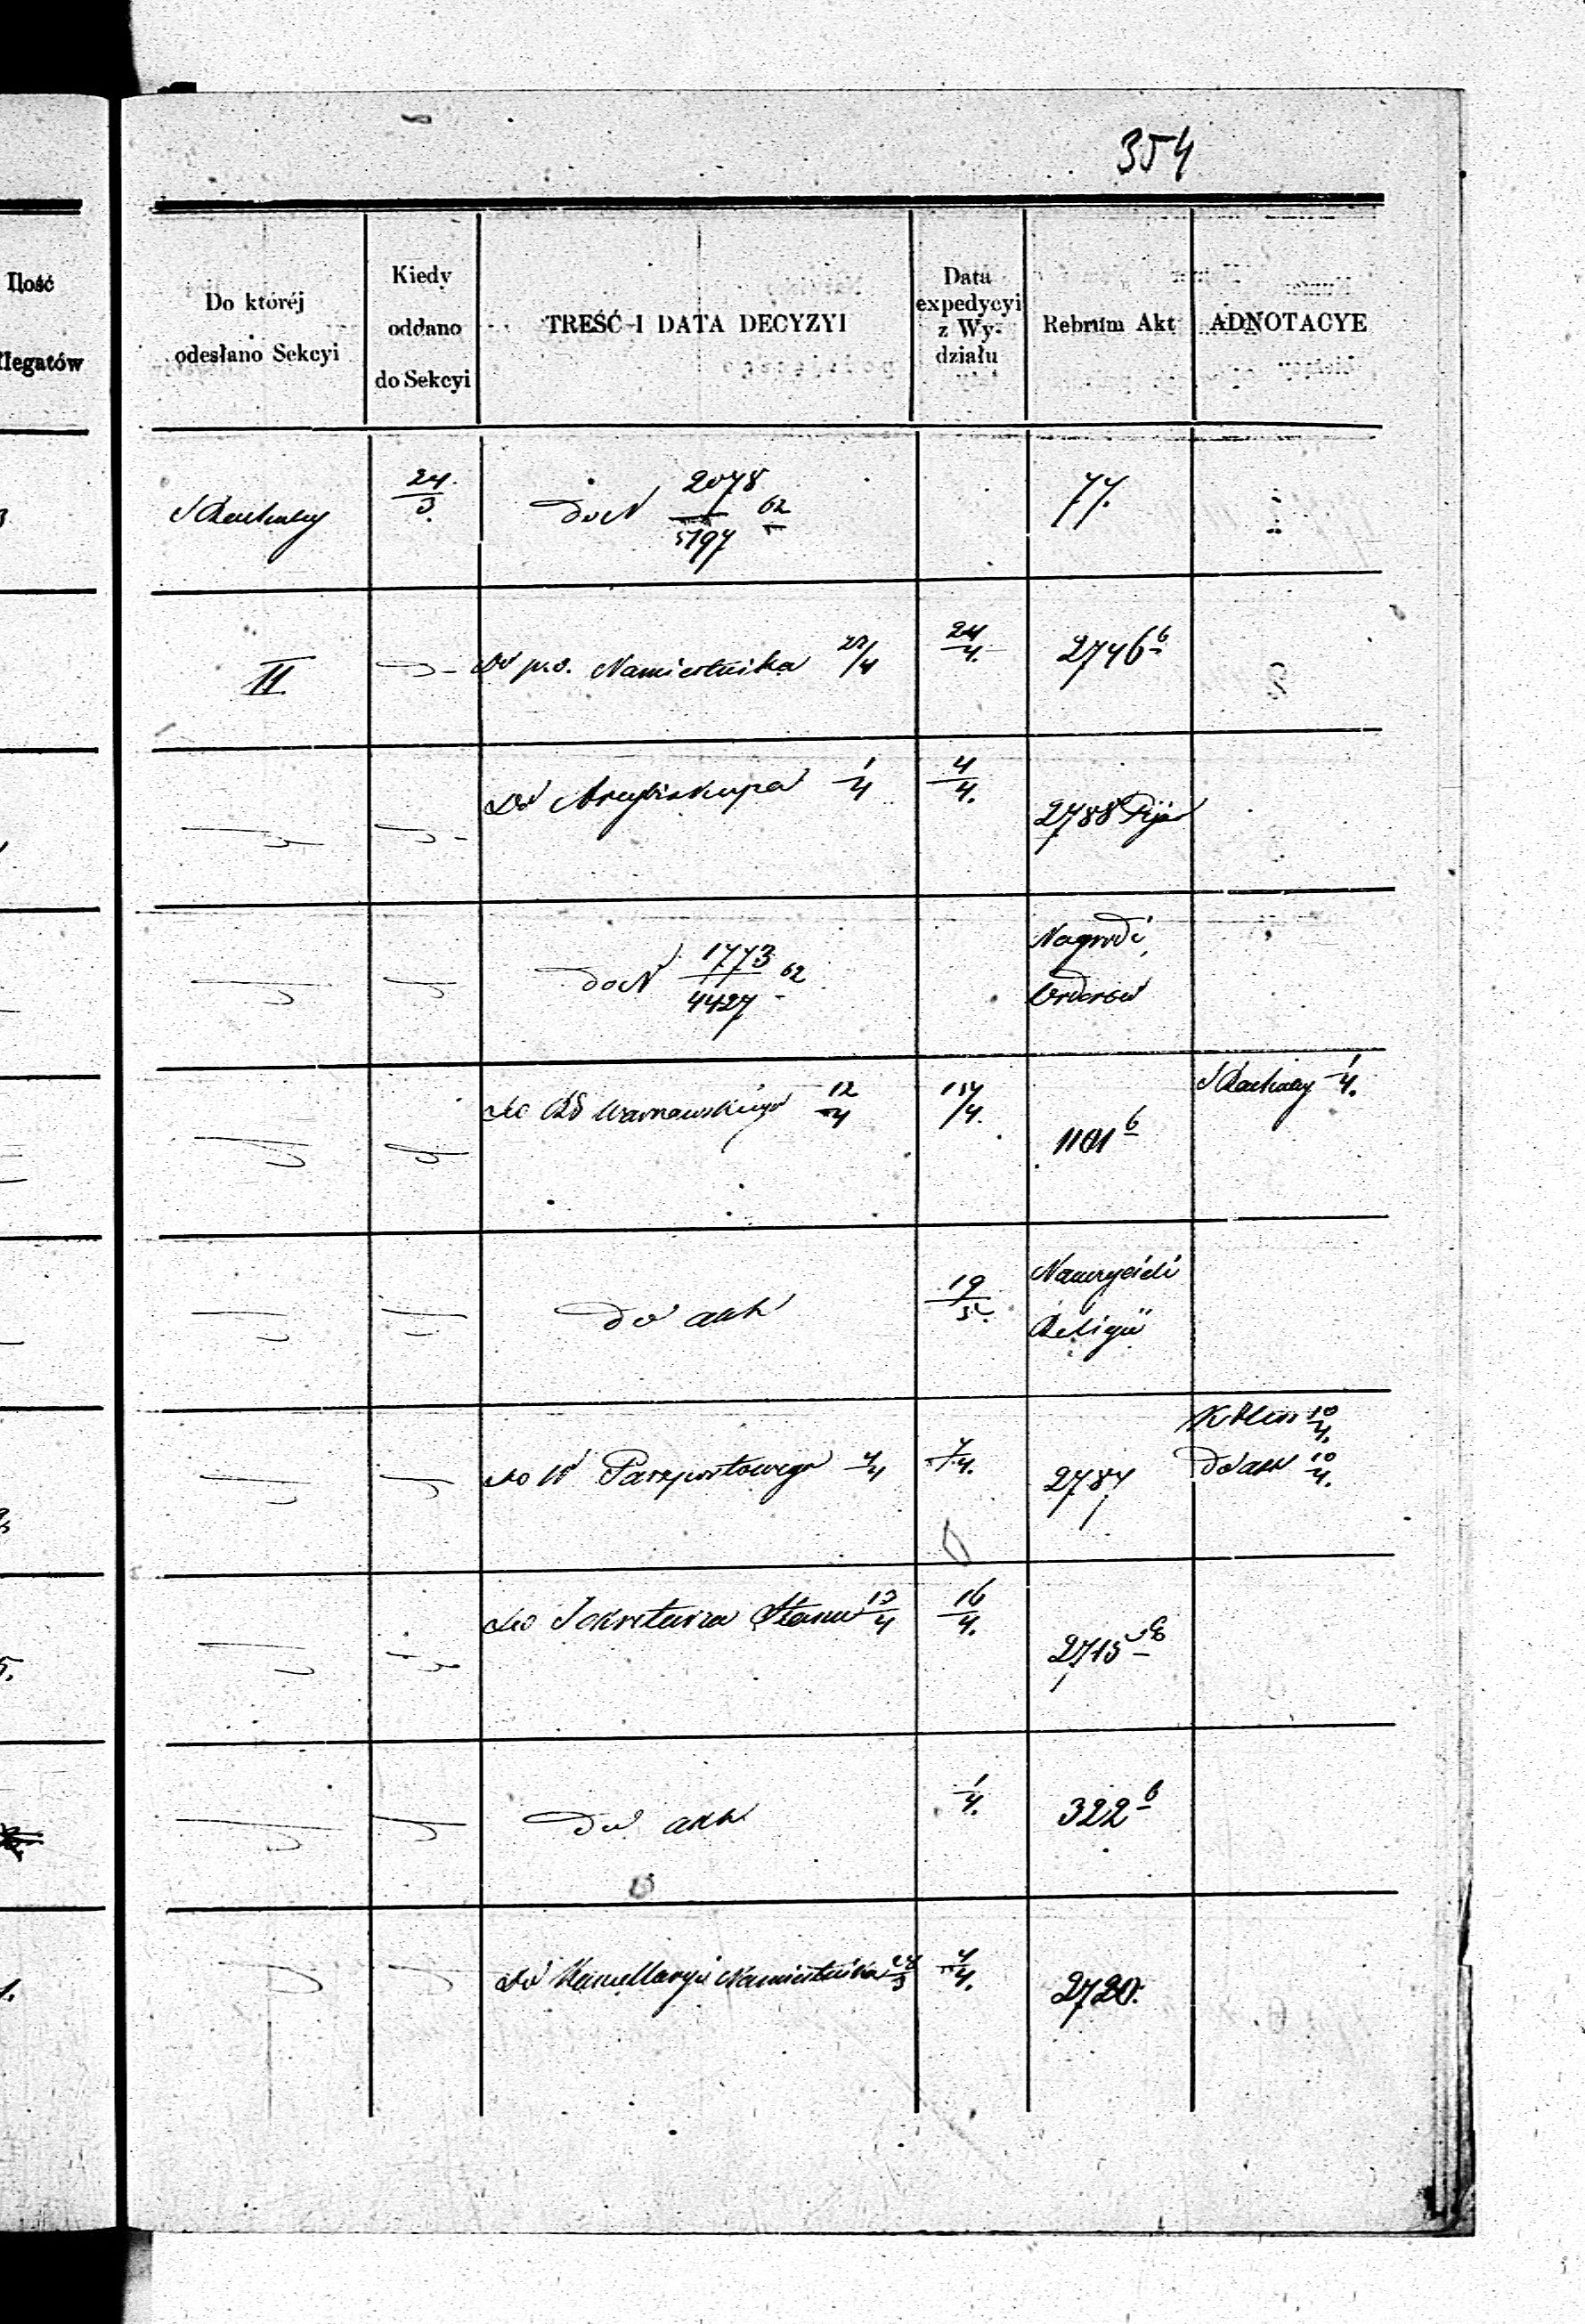 354
Ilość
llegatów
Do któréj
odesłano Sekcyi
Kiedy
oddano
do Sekcyi
TREŚĆ I DATA DECYZYI
Data
expedycyi
z Wy-
działu
Rebrum Akt
ADNOTACYE
24/3 do N 2078/5197 62 77.
II Do p.o. Namiestnika 22/4 24/4. 2746 b
Do Arcybiskupa 1/4 4/4. 2788
do N 1773/4427 62 Nagrodi
Orderów
Warszawskiego 12/4 14/4. 1101 b 1/4.
do akt 19/5.
Religii
Do W Paszportowego 4/4 7/4. 2784 10/4.
do akt 10/4.
Do Sekretarza Stanu 13/4 16/4. 2715
do akt 1/4. 322 b
Do Kancellaryi Namiestnika 28/3 4/4. 2720.